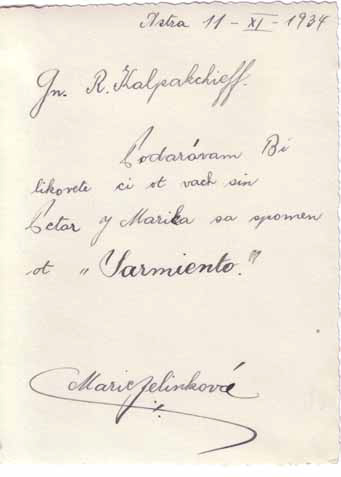 Astra 11 - XI - 1934
Gn. R. Kalpakchieff.
Podarávam Bi
likovete ci ot vach sin
Petar y Marika sa spomen
ot „Sarmiento."
Marie Jelinková